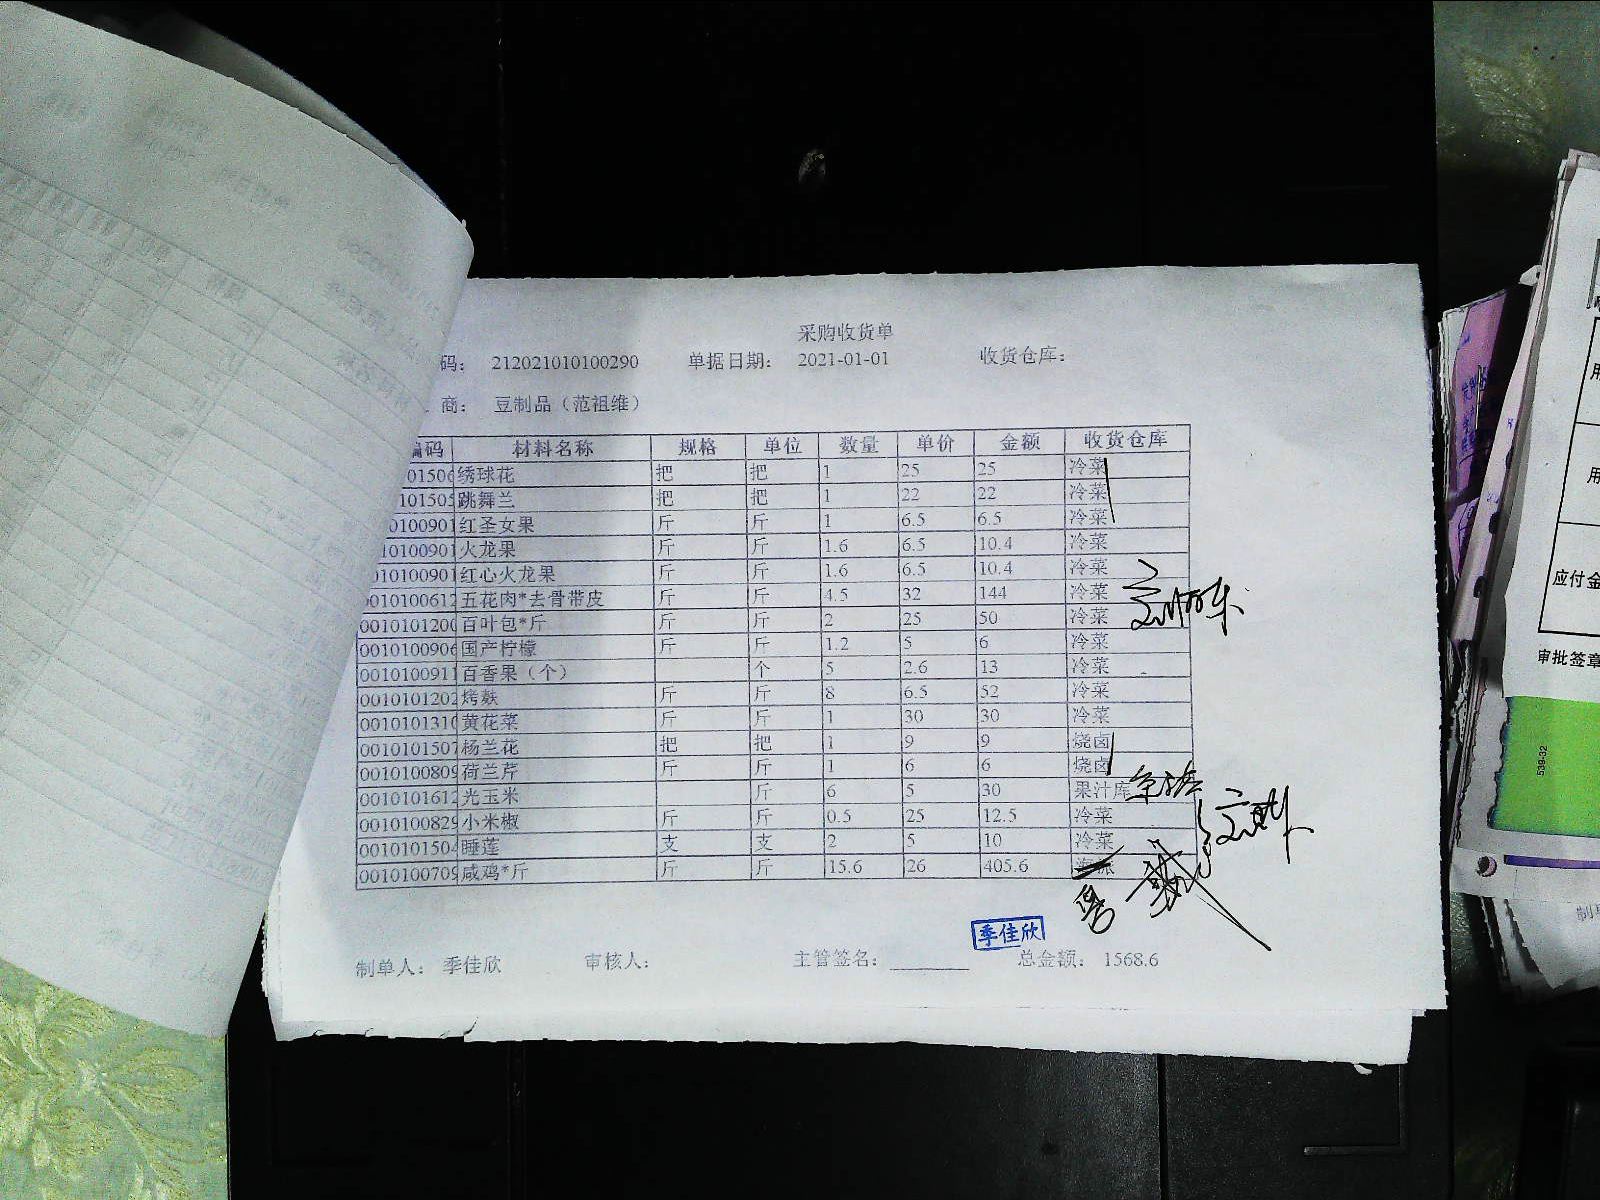 采购收货单
码： 212021010100290 单据日期： 2021-01-01 收货仓库：
商： 豆制品（范祖维）
编码 材料名称 规格 单位 数量 单价 金额 收货仓库
01506 绣球花 把 把 1 25 25 冷菜
101505 跳舞兰 把 把 1 22 22 冷菜
010100901 红圣女果 斤 斤 1 6.5 6.5 冷菜
010100901 火龙果 斤 斤 1.6 6.5 10.4 冷菜
010100901 红心火龙果 斤 斤 1.6 6.5 10.4 冷菜
0010100612 五花肉*去骨带皮 斤 斤 4.5 32 144 冷菜
0010101200 百叶包*斤 斤 斤 2 25 50 冷菜
0010100906 国产柠檬 斤 斤 1.2 5 6 冷菜
0010100911 百香果（个） 个 5 2.6 13 冷菜
0010101202 烤麸 斤 斤 8 6.5 52 冷菜
0010101310 黄花菜 斤 斤 1 30 30 冷菜
0010101507 杨兰花 把 把 1 9 9 烧卤
0010100809 荷兰芹 斤 斤 1 6 6 烧卤
0010101612 光玉米 斤 6 5 30 果汁库
0010100829 小米椒 斤 斤 0.5 25 12.5 冷菜
0010101504 睡莲 支 支 2 5 10 冷菜
0010100709 咸鸡*斤 斤 斤 15.6 26 405.6
季佳欣
制单人： 季佳欣 审核人： 主管签名： 总金额： 1568.6
应付金
审批签章
539-32